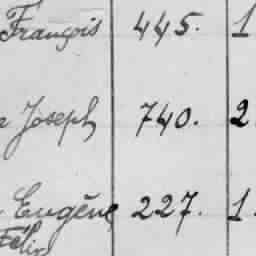 François 445. 1
Joseph 740. 2
Eugène 227. 1.
Félix